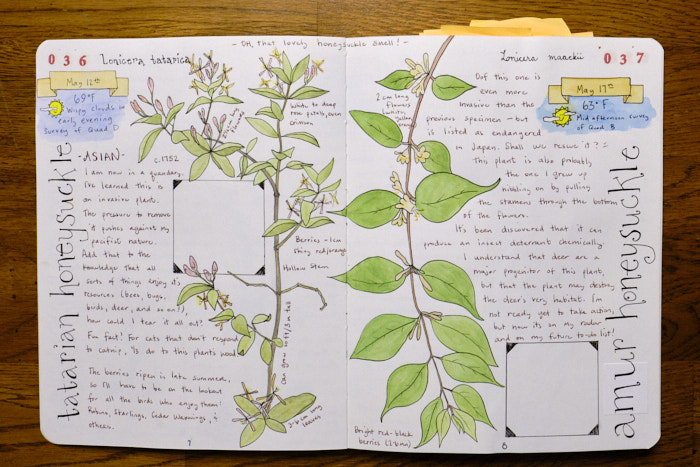 - OH, that lovely honeysuckle smell! -
036
Lonicera tatarica
May 12th
68°F
Wispy clouds in
early evening
Survey of Quad D
tatarian honeysuckle
- ASIAN -
C.1752
I am now in a quandary.
I've learned this is
an invasive plant.
The pressure to remove
it pushes against my
pacifist nature.
Add that to the
knowledge that all
sorts of things enjoy its
resources (bees, bugs,
birds, deer, and so on!),
how could I tear it all out?
Fun fact! For cats that don't respond
to catnip, 1/2 do to this plants wood.
The berries ripen in late summer,
so I'll have to be on the lookout
for all the birds who enjoy them!
Robins, Starlings, Cedar Waxwings, &
others.
White to deep
rose petals, even
crimson
Berries - 1cm
shiny red/orange
Hollow Stem
Can grow 10ft/3m tall
3-6 cm long
leaves
7
Lonicera maackii
037
May 17th
63°F
Mid afternoon survey
of Quad B
amur honeysuckle
2 cm long
flowers
white,
yellow,
Oof this one is
even more
invasive than the
previous specimen - but
is listed as endangered
in Japan. Shall we rescue it?
This plant is also probably
the one I grew up
nibbling on by pulling
the stamens through the bottom
of the flowers.
It's been discovered that it can
produce an insect deterrant chemically.
I understand that deer are a
major progenitor of this plant,
but that the plant may destroy
the deer's very habitat. I'm
not ready yet to take action,
but now it's on my radar
and on my future to-do list!
Bright red-black
berries (2-6mm)
8